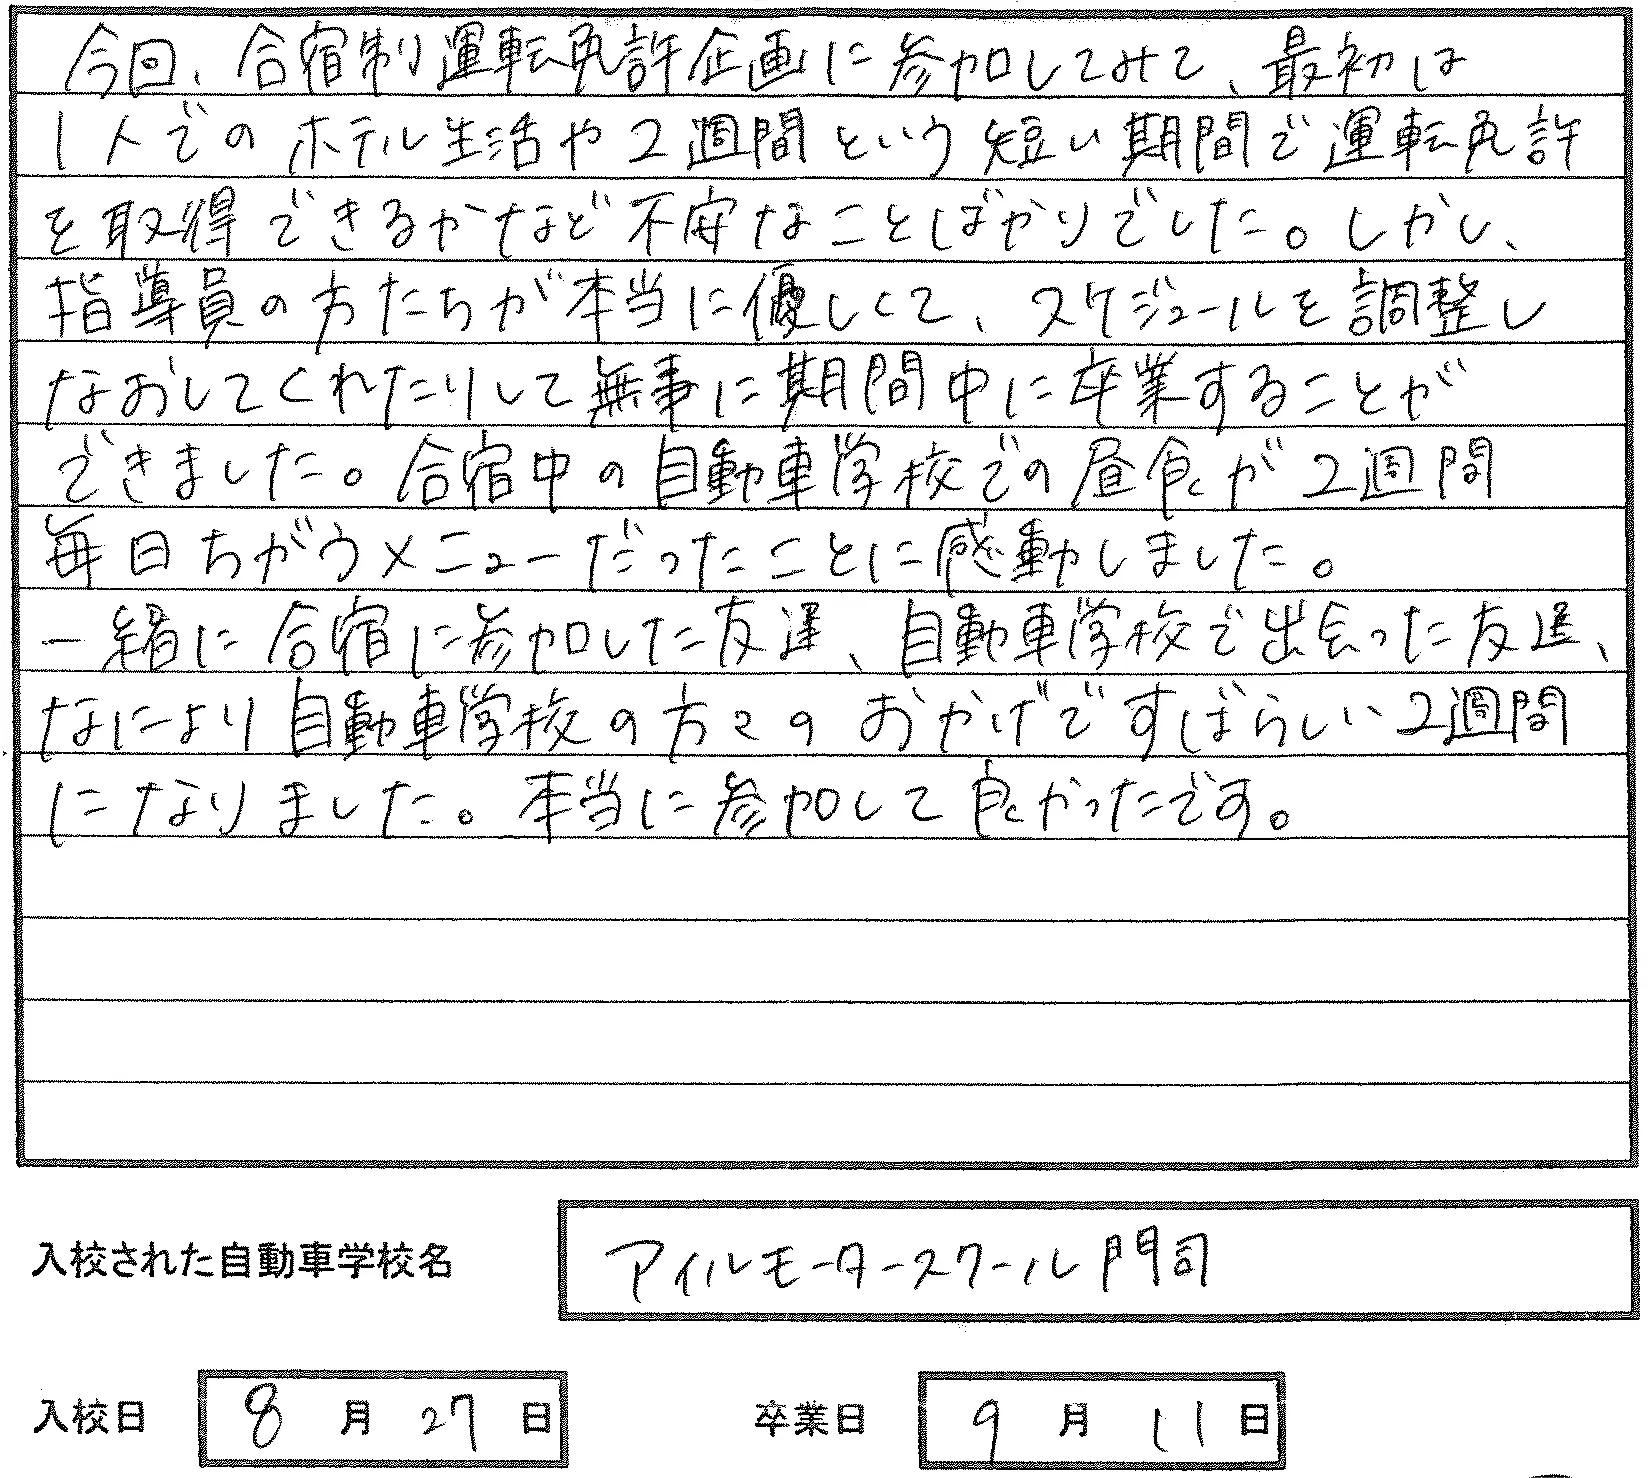 今回、合宿制運転免許企画に参加してみて、最初は
1人でのホテル生活や2週間という短い期間で運転免許
を取得できるかなど不安なことばかりでした。しかし、
指導員の方たちが本当に優しくて、スケジュールを調整し
なおしてくれたりして無事に期間中に卒業することが
できました。合宿中の自動車学校での昼食が2週間
毎日ちがうメニューだったことに感動しました。
一緒に合宿に参加した友達、自動車学校で出会った友達、
なにより自動車学校の方々のおかげですばらしい2週間
になりました。本当に参加して良かったです。
入校された自動車学校名 アイルモータースクール門司
入校日 8月27日 卒業日 9月11日